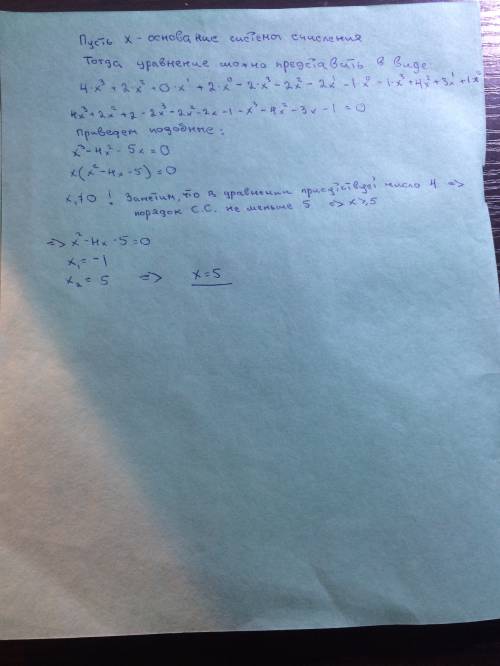 Пусть X - основание системы счисления
Тогда уравнение можно представить в виде:
4·x³ + 2·x² + 0·x¹ + 2·x⁰ - 2·x³ - 2x² - 2x¹ - 1·x⁰ - 1·x³ + 4x² + 3x¹ + 1x⁰
4x³ + 2x² + 2 - 2x³ - 2x² - 2x - 1 - x³ - 4x² - 3x - 1 = 0
Приведем подобные:
x³ - 4x² - 5x = 0
x(x² - 4x - 5) = 0
x₁≠0 ! Заметим, что в уравнении присутствует число 4 =>
порядок С.С. не меньше 5 => x≥5
=> x² - 4x - 5 = 0
x₁ = -1
x₂ = 5 => x = 5